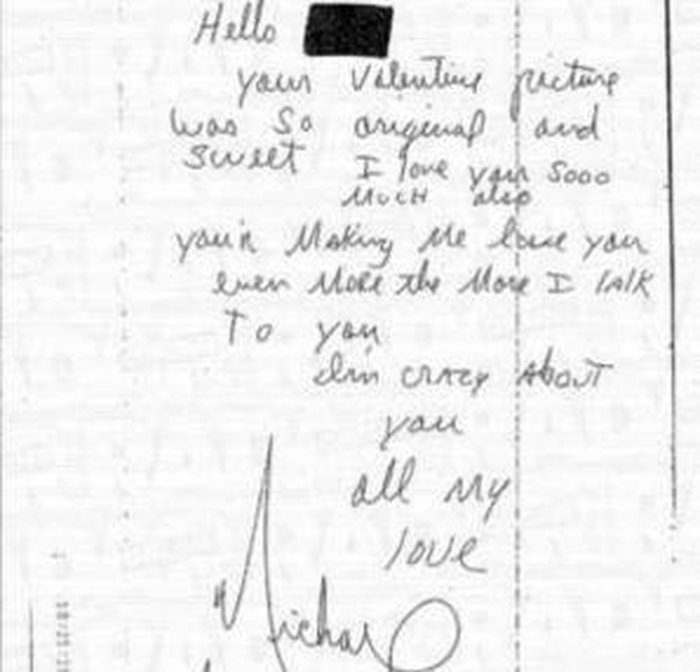 Hello
your Valentine picture
was so original and
sweet I love you sooo
MUCH also
you'r Making Me love you
even More the More I talk
To you
I'm crazy About
you
all my
love
Michael